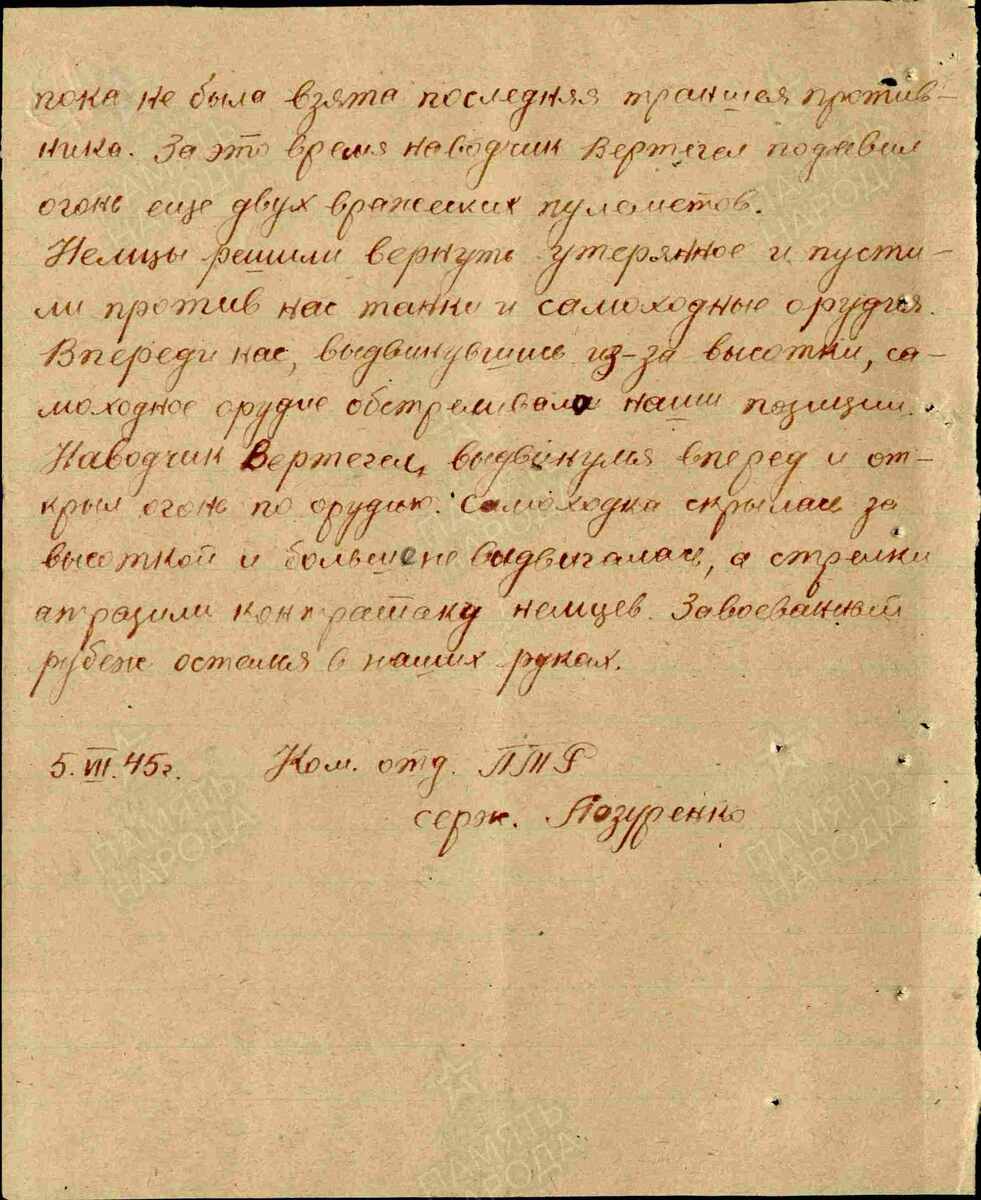 пока не была взята последняя траншея против-
ника. За это время наводчик Вертегел подавил
огонь еще двух вражеских пулеметов.
Немцы решили вернуть утерянное и пусти-
ли против нас танки и самоходные орудия.
Впереди нас, выдвинувшись из-за высотки, са-
моходное орудие обстреливало наши позиции.
Наводчик Вертегел, выдвинулся вперед и от-
крыл огонь по орудию. Самоходка скрылась за
высоткой и больше не выдвигалась, а стрелки
атразили контратаку немцев. Завоеванный
рубеж остался в наших руках.
5.VII.45г. Ком. отд. ПТР
серж. Лазуренко
ПАМЯТЬ
НАРОДА
ПАМЯТЬ
НАРОДА
ПАМЯТЬ
НАРОДА